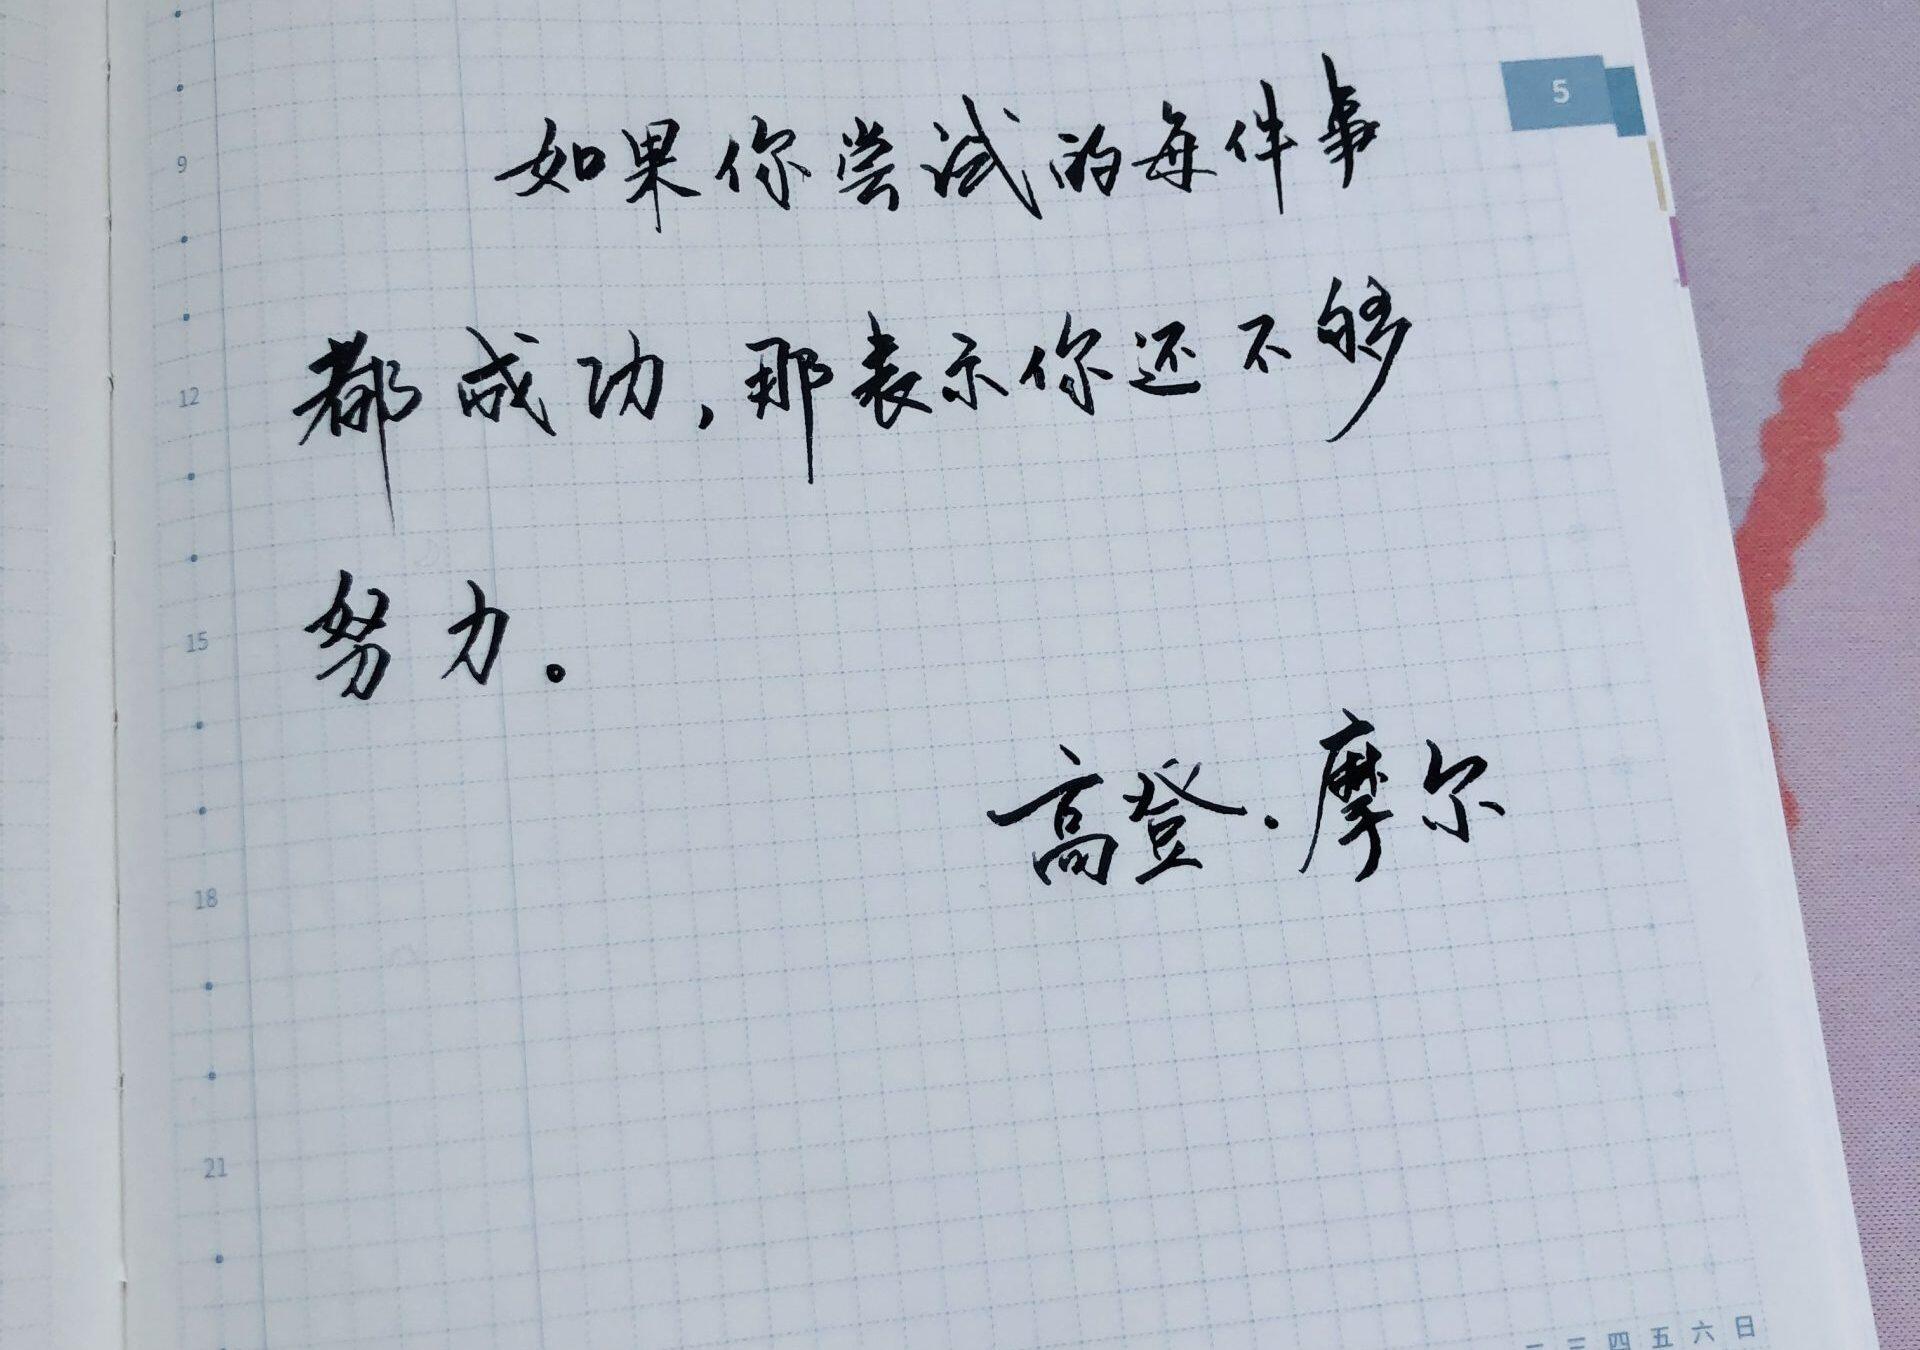 5
如果你尝试的每件事
9
都成功，那表示你还不够
12
努力。
15
高登·摩尔
18
21
三四五六日